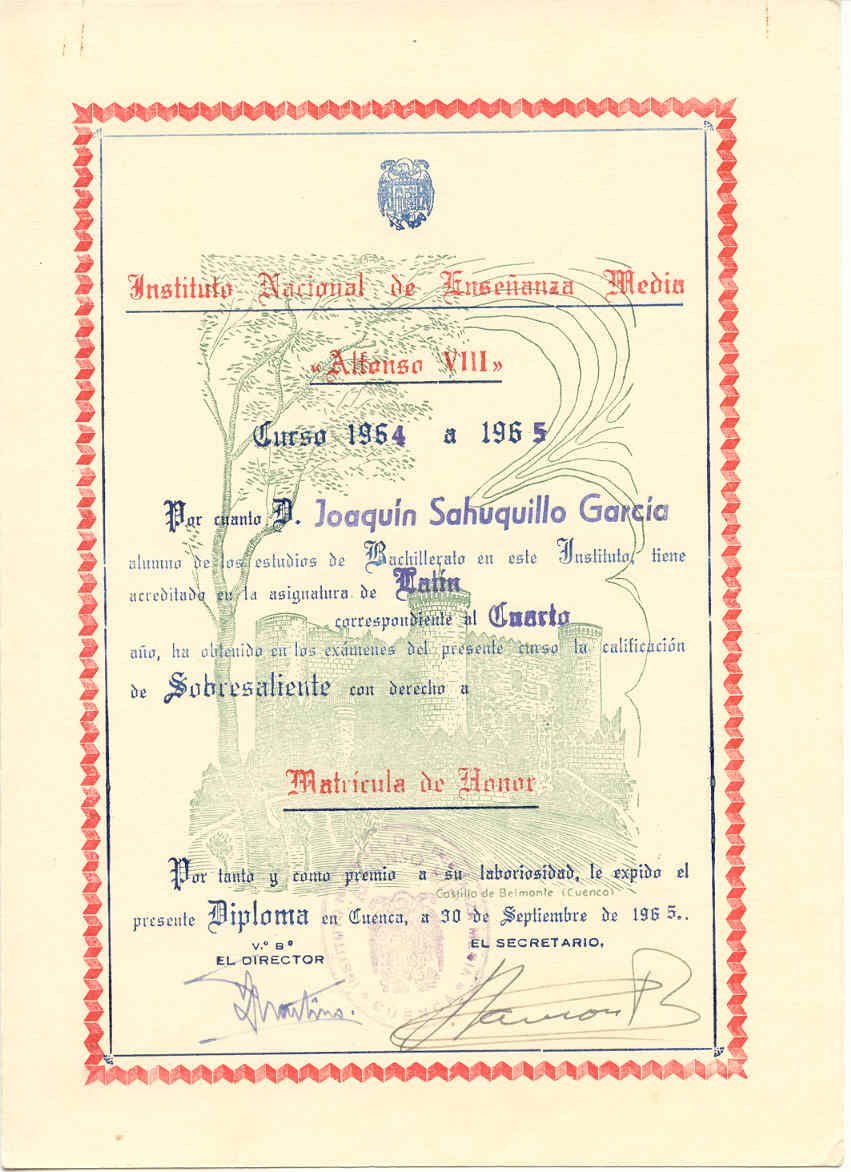 Instituto Nacional de Enseñanza Media
«Alfonso VIII»
Curso 1964 a 1965
Por cuanto D. Joaquín Sahuquillo García
alumno de los estudios de Bachillerato en este Instituto, tiene
acreditado en la asignatura de Latín
correspondiente al Cuarto
año, ha obtenido en los exámenes del presente curso la calificación
de Sobresaliente con derecho a
Matrícula de Honor
Por tanto y como premio a su laboriosidad, le expido el
Castillo de Belmonte (Cuenca)
presente Diploma en Cuenca, a 30 de Septiembre de 1965..
V.º B.º
EL DIRECTOR
EL SECRETARIO,
CUENCA